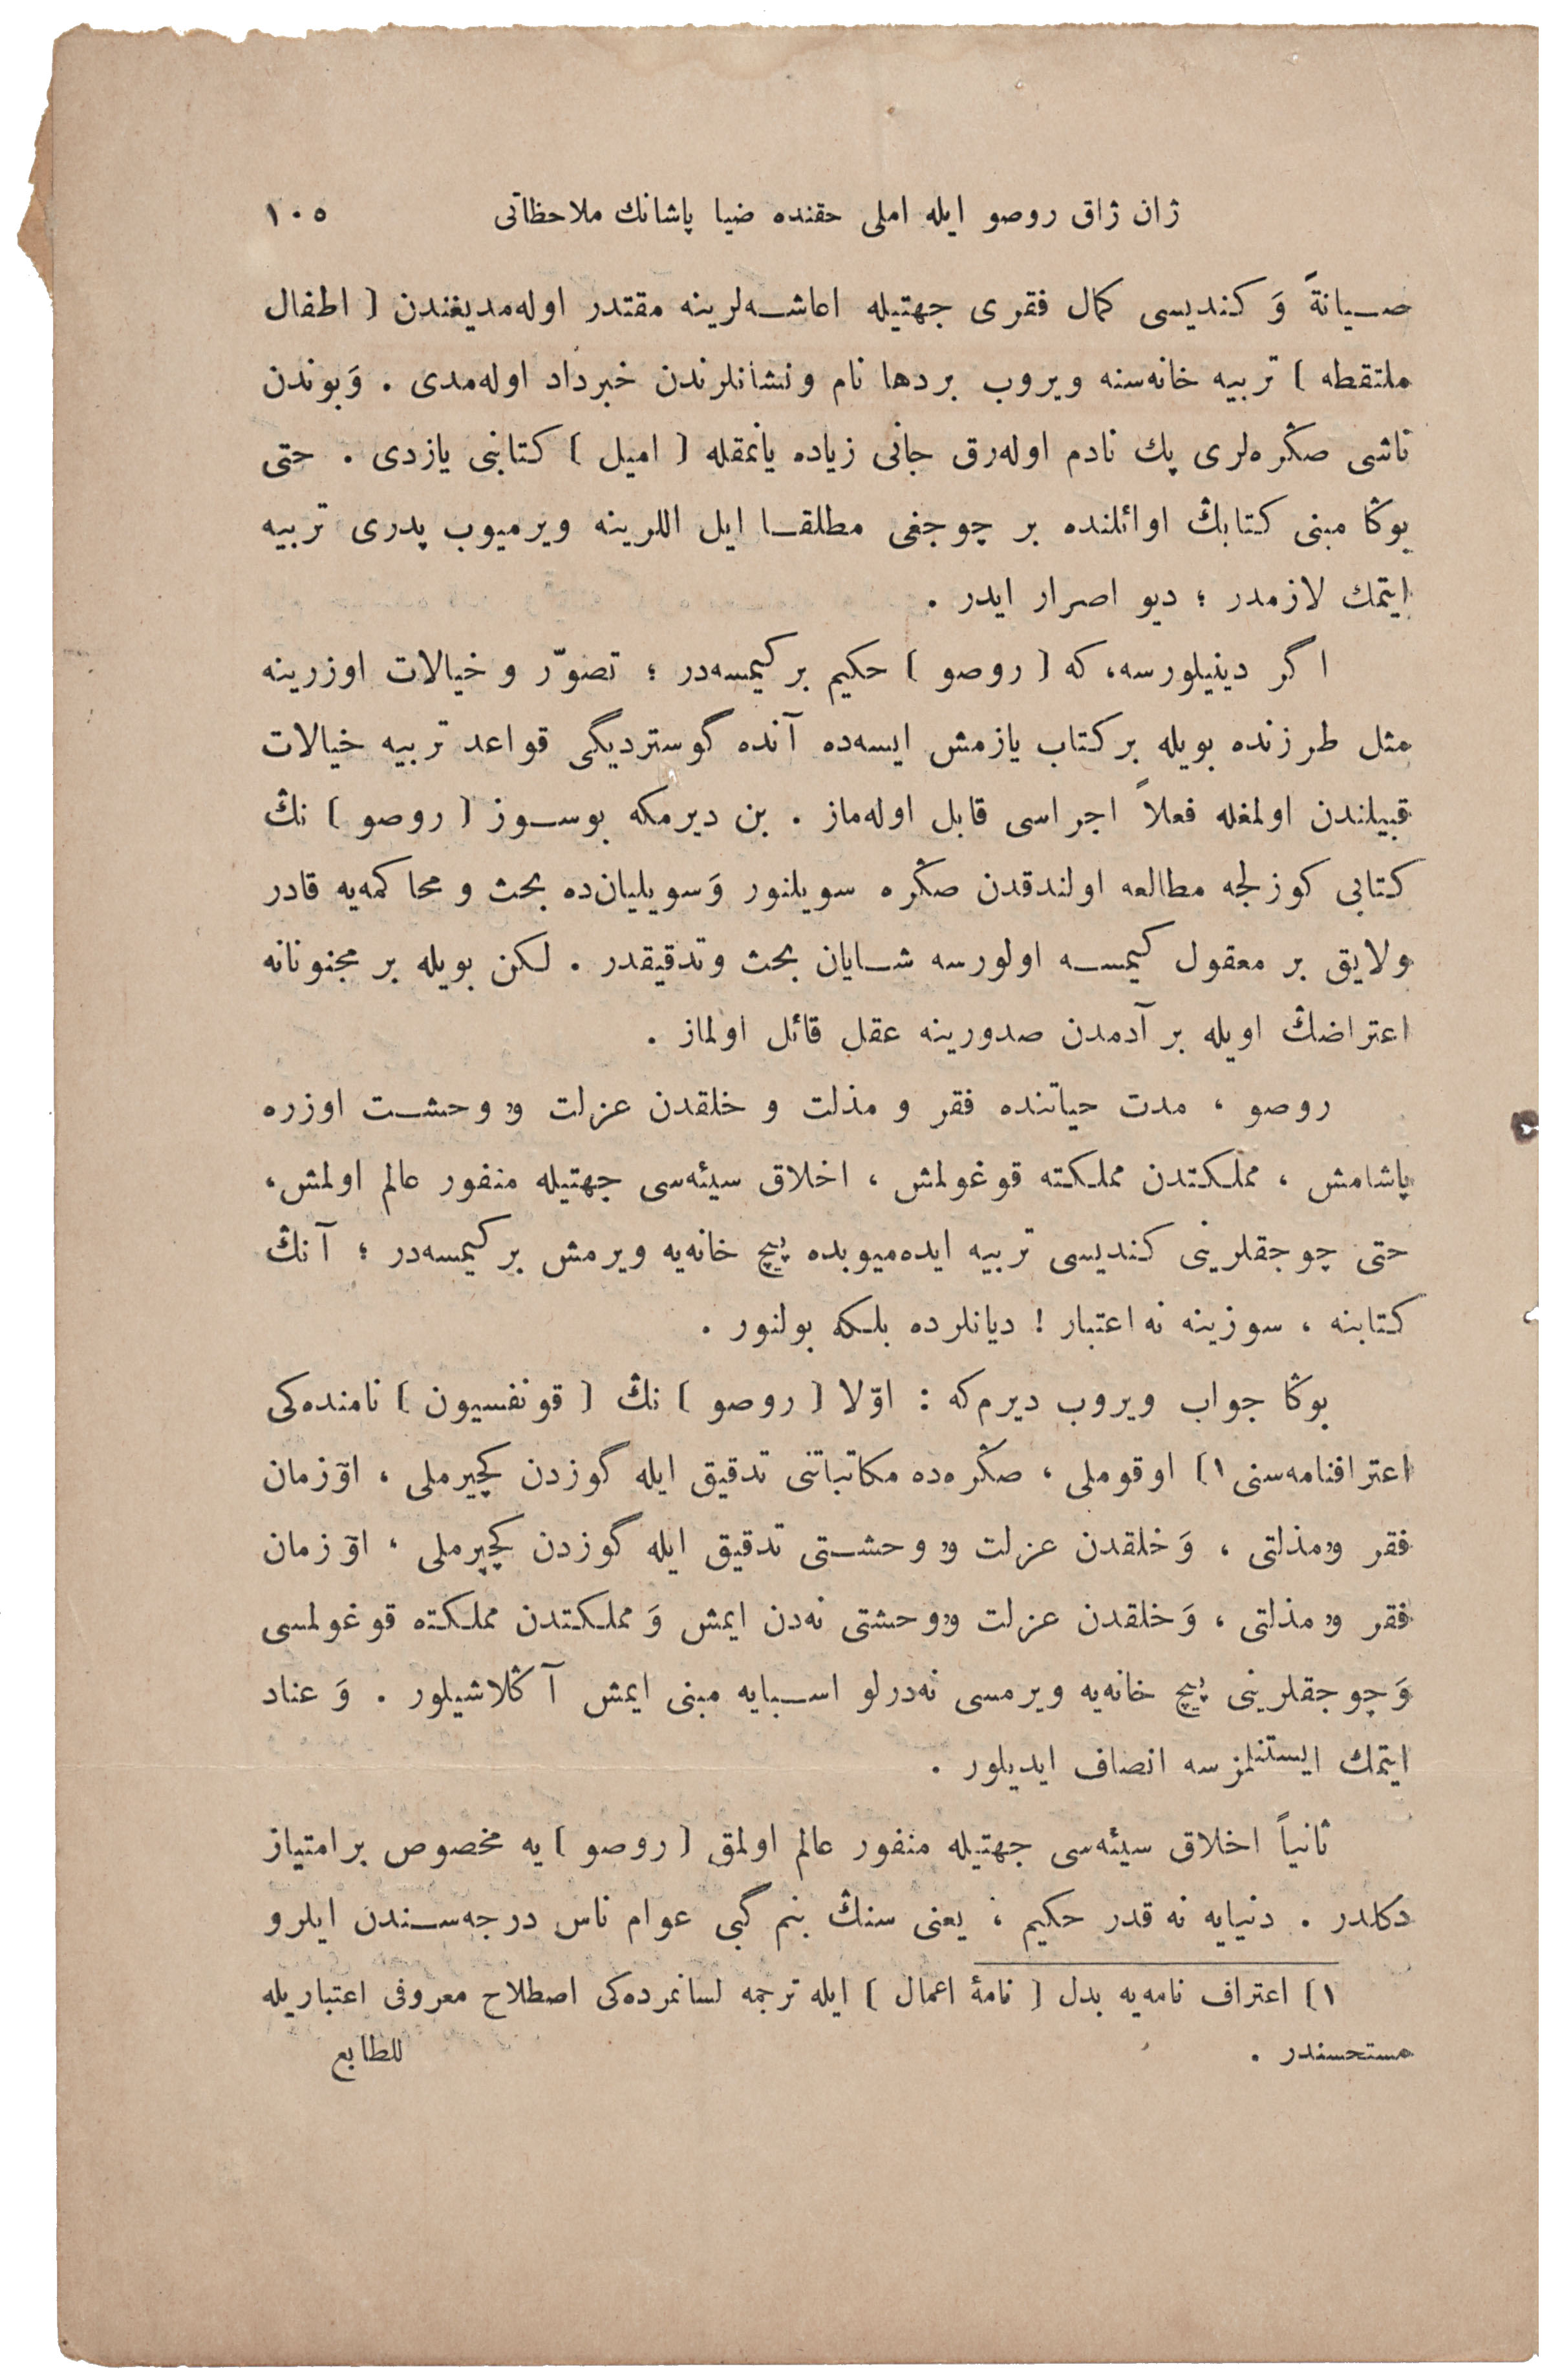 ژان ژاق روصو ايله املى حقنده ضيا پاشانك ملاحظاتى ١٠٥
صيانةً وَ كنديسى كمال فقرى جهتيله اعاشه‌لرينه مقتدر اوله‌مديغندن [ اطفال
ملتقطه ] تربيه خانه‌سنه ويروب بردها نام ونشانلرندن خبرداد اوله‌مدى . وَبوندن
ناشى صڭره‌لرى پك نادم اوله‌رق جانى زياده يانمقله [ اميل ] كتابنى يازدى . حتى
بوڭا مبنى كتابڭ اوائلنده بر چوجغى مطلقا ايل اللرينه ويرميوب پدرى تربيه
ايتمك لازمدر ؛ ديو اصرار ايدر .
اگر دينيلورسه، كه [ روصو ] حكيم بركيمسه‌در ؛ تصوّر و خيالات اوزرينه
مثل طرزنده بويله بركتاب يازمش ايسه‌ده آنده گوسترديگى قواعد تربيه خيالات
قبيلندن اولمغله فعلاً اجراسى قابل اوله‌ماز . بن ديرمكه بوسوز [ روصو ] نڭ
كتابى كوزلجه مطالعه اولندقدن صڭره سويلنور وَسويليان‌ده بحث و محاكمه‌يه قادر
ولايق بر معقول كيمسه اولورسه شايان بحث وتدقيقدر . لكن بويله بر مجنونانه
اعتراضڭ اويله بر آدمدن صدورينه عقل قائل اولماز .
روصو ، مدت حياتنده فقر و مذلت و خلقدن عزلت وُ وحشت اوزره
ياشامش ، مملكتدن مملكته قوغولمش ، اخلاق سيئه‌سى جهتيله منفور عالم اولمش،
حتى چوجقلرينى كنديسى تربيه ايده‌ميوبده پيچ خانه‌يه ويرمش بركيمسه‌در ؛ آنڭ
كتابنه ، سوزينه نه اعتبار ! ديانلرده بلكه بولنور .
بوڭا جواب ويروب ديرم‌كه : اوّلا [ روصو ] نڭ [ قونفسيون ] نامنده‌كى
اعترافنامه‌سنى ١] اوقوملى ، صڭره‌ده مكاتباتنى تدقيق ايله گوزدن كچيرملى ، اوٓزمان
فقر وُمذلتى ، وَخلقدن عزلت وُ وحشتى تدقيق ايله گوزدن كچيرملى ، اوٓ زمان
فقر وُ مذلتى ، وَخلقدن عزلت وُوحشتى نه‌دن ايمش وَ مملكتدن مملكته قوغولمسى
وَچوجقلرينى پيچ خانه‌يه ويرمسى نه‌درلو اسبابه مبنى ايمش آڭلاشيلور . وَ عناد
ايتمك ايستنلمزسه انصاف ايديلور .
ثانياً اخلاق سيئه‌سى جهتيله منفور عالم اولمق [ روصو ] يه مخصوص برامتياز
دكلدر . دنيايه نه قدر حكيم ، يعنى سنڭ بنم گبى عوام ناس درجه‌سندن ايلرو
١] اعتراف نامه‌يه بدل [ نامهٔ اعمال ] ايله ترجمه لسانمزده‌كى اصطلاح معروفى اعتباريله
مستحسندر . للطابع